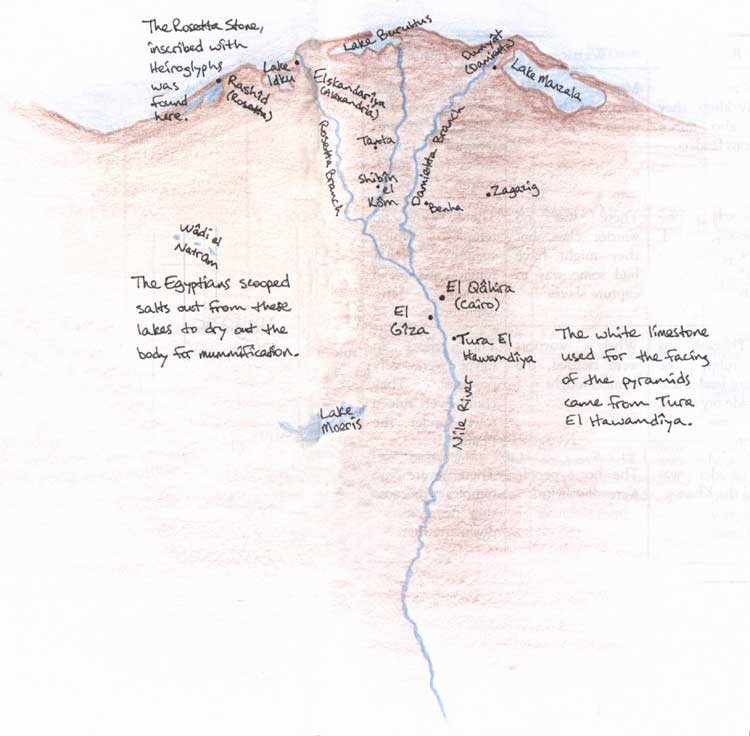 The Rosetta Stone,
inscribed with
Heiroglyphs
was
found
here.
Rashid
(Rosetta)
Lake
Idku
Elskandariya
(Alexandria)
Lake Burullus
Dumyat
(Damietta)
Lake Manzala
Rosetta Branch
Tanta
Shibîn
el
Kôm
Damietta Branch
Benha
Zagazig
Wâdi el
Natrûn
The Egyptians scooped
salts out from these
lakes to dry out the
body for mummification.
El Qâhira
(Cairo)
El
Gîza
Tura El
Hawamdîya
The white limestone
used for the facing
of the pyramids
came from Tura
El Hawamdîya.
Lake
Moeris
Nile River